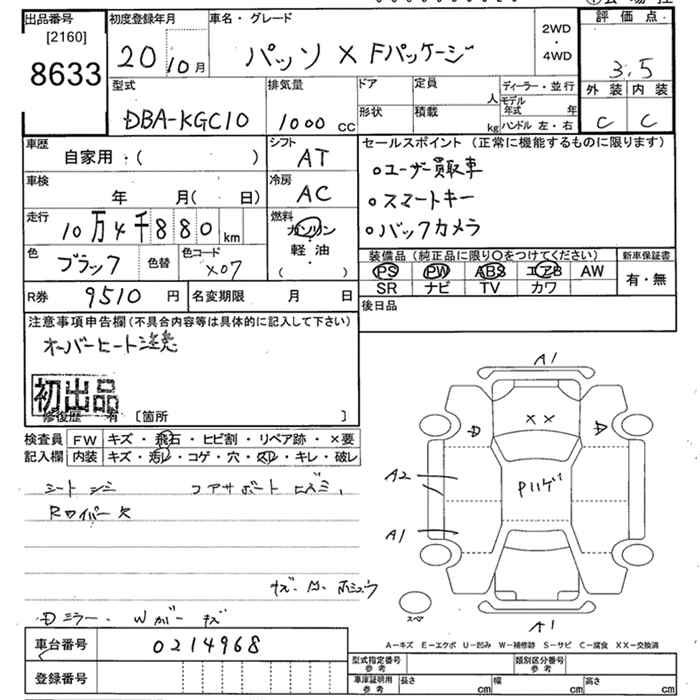 出品番号
[2160]
8633
初度登録年月
20 10月
車名・グレード
パッソ X Fパッケージ
2WD
・
4WD
評価点
3.5
外装 内装
C C
型式
DBA-KGC10
排気量
1000 cc
ドア
形状
定員
人
積載
kg
ディーラー・並行
モデル年式 年
ハンドル 左・右
車歴
自家用・( )
シフト
AT
車検
年 月( 日)
冷房
AC
走行
10万4千880 km
燃料
ガソリン
軽油
( )
色
ブラック
色替
色コード
X07
R券 9510 円
名変期限 月 日
セールスポイント(正常に機能するものに限ります)
○ユーザー買取車
○スマートキー
○バックカメラ
装備品(純正品に限り○をつけてください)
PS PW ABS エアB AW
SR ナビ TV カワ
新車保証書
有・無
後日品
注意事項申告欄(不具合内容等は具体的に記入して下さい)
オーバーヒート注意
初出品
修復歴 有 〔箇所 〕
検査員記入欄
FW キズ・飛石・ヒビ割・リペア跡・×要
内装 キズ・汚レ・コゲ・穴・スレ・キレ・破レ
シート シミ
Rワイパー欠
キズ・A・ホシュウ
Dミラー・Wガリキズ
車台番号 0214968
登録番号
A1
X X
D D
A2
A1
A1
スペア
A－キズ E－エクボ U－凹み W－補修跡 S－サビ C－腐食 XX－交換済
型式指定番号
参考
類別区分番号
参考
車庫証明用
参考
長さ cm
幅 cm
高さ cm